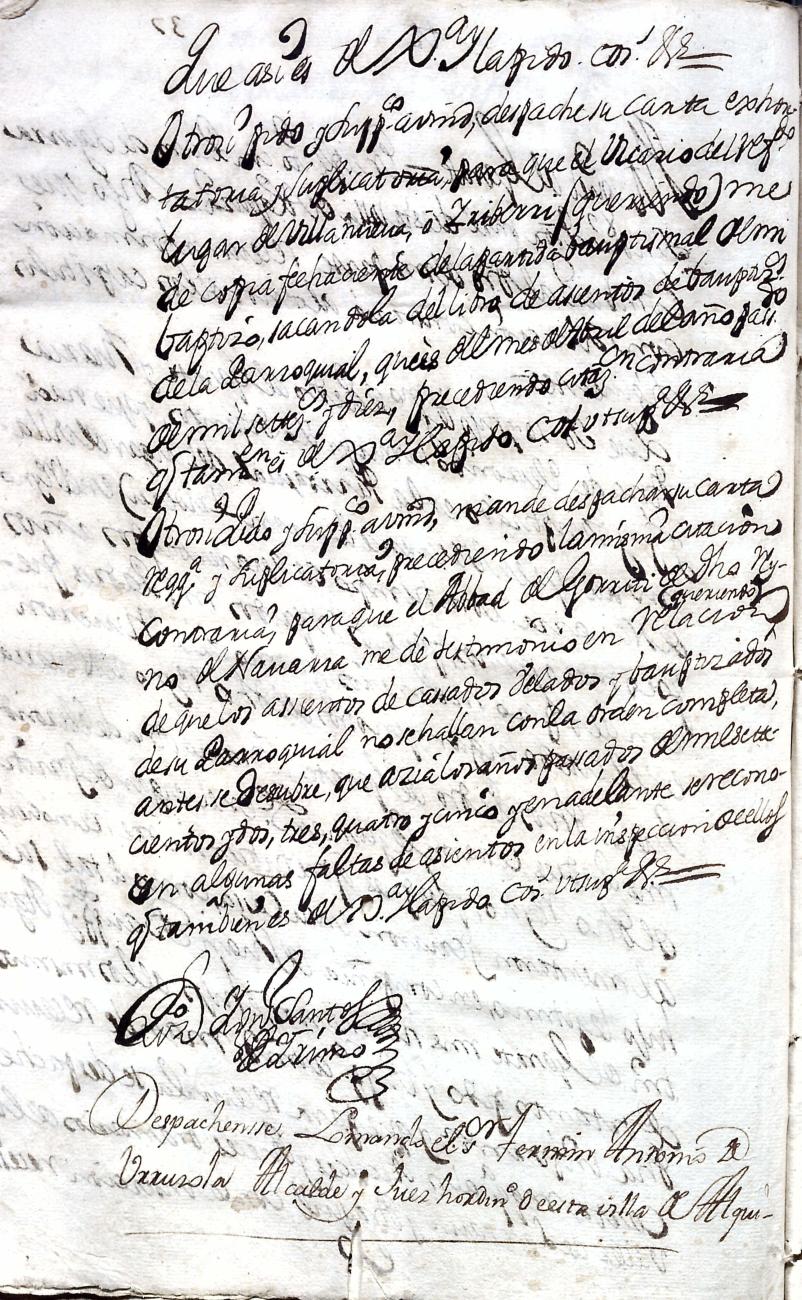 Que assi es de Xa y la pido. cos.s &a
Otrosi pido y supp.co a vmd, despache su carta exhor-
tatoria, y suplicatoria, para que el Vicario del ref.do
lugar de Villanueva, ô Yriberri (queriendo) me
de copia fehaciente de la partida bauptismal de mi
baptizo, sacandola del libro de asientos de baupt.os
de la Parroquial, que es del mes de Abril del año pass.do
de mil sette.os y diez, precediendo citaz.on contraria
q tamvn es de Xa y la pido. cos.s ut sup.a &a
Otrosi pido y supp.co a vmd, mande despachar su carta
reqq.a y suplicatoria, precediendo la misma citacion
contraria, para que el Abbad de Gorriti de dho Rey-
no de Navarra (queriendo) me de testimonio en relacion
de que los assientos de cassados velados y bauptizados
de su Parroquial no se hallan con la orden completa,
antes se descubre, que azia los años passados de mil sete-
cientos y dos, tres, quatro y cinco y en adelante se recono-
cen algunas faltas de asientos en la inspeccion de ellos
q tambien es de Xa y la pido cos.s ut sup.a &a
Santos
Despachense, Lo mando el s.or Fermin Antonio de
Urruzola Alcalde y Juez hordin.o de esta villa de Alqui-